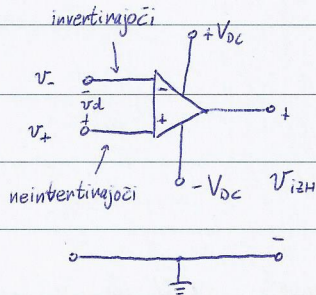 invertirajoči
+VDC
v-
- vd +
v+
- +
+
neinvertirajoči
-VDC
vIZH
-